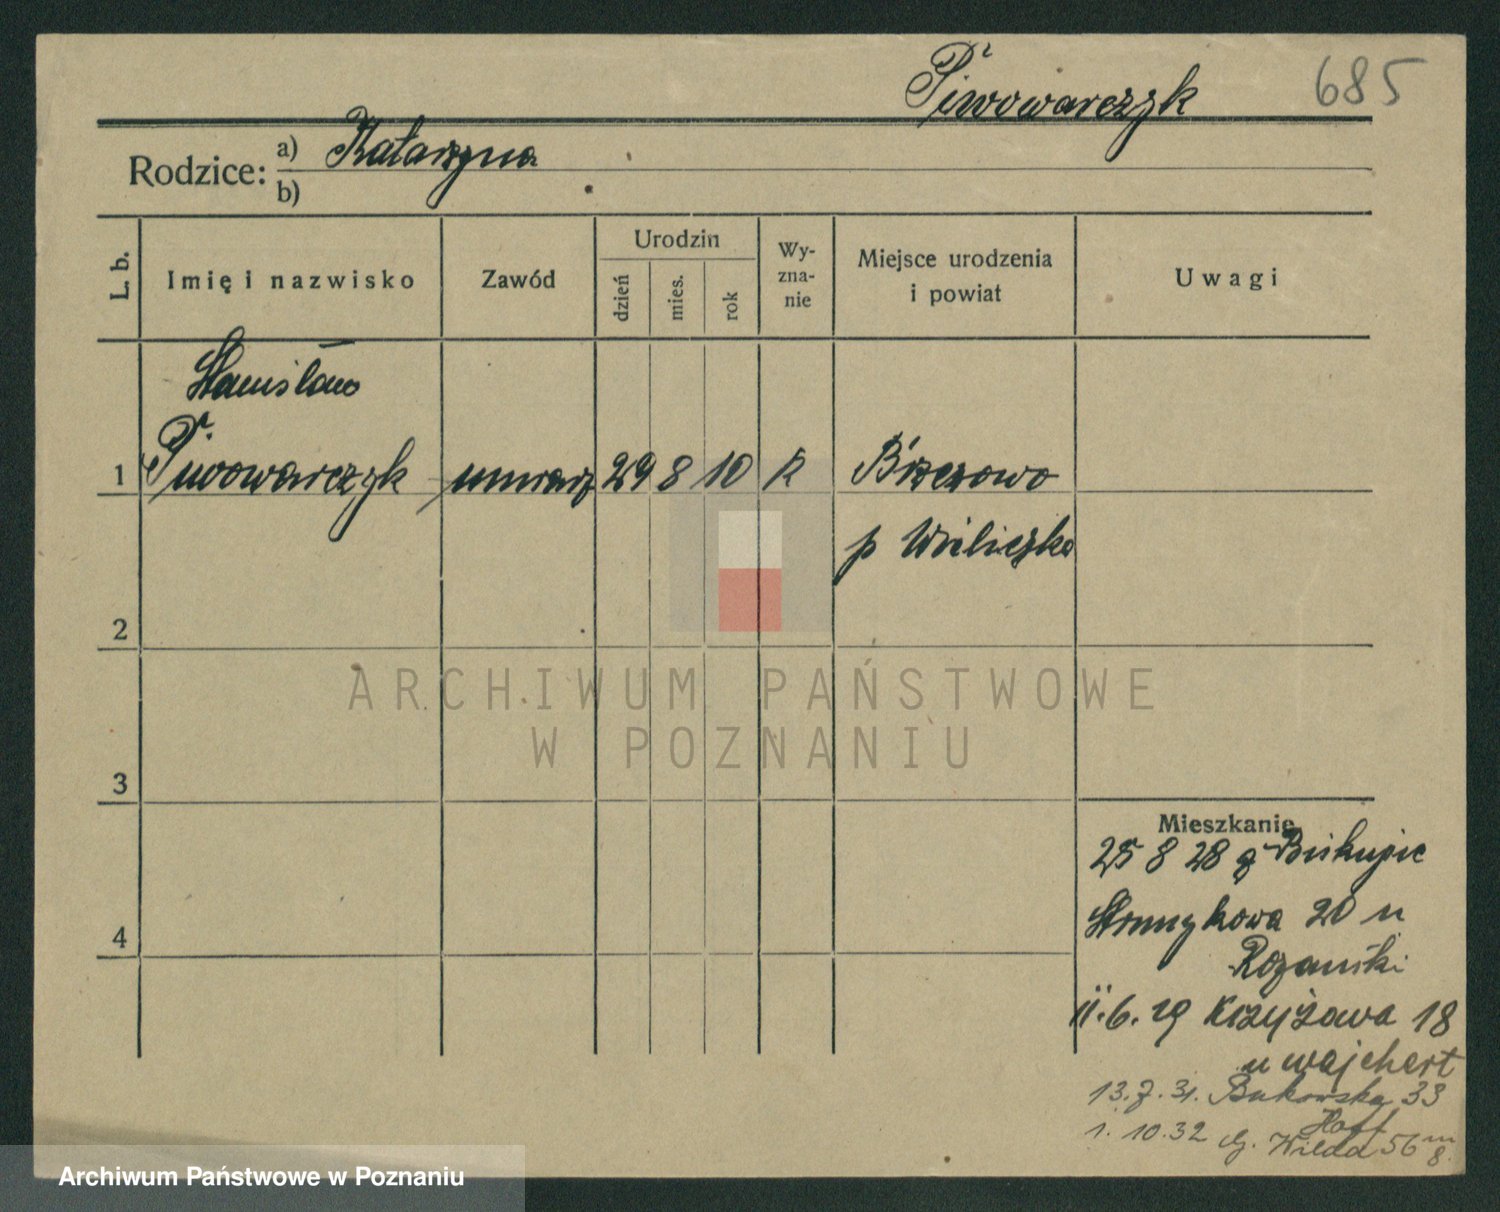 Piwowarczyk 685
Rodzice: a) Katarzyna
b)
L. b.
Imię i nazwisko
Zawód
Urodzin
dzień
mies.
rok
Wy-
zna-
nie
Miejsce urodzenia
i powiat
Uwagi
Stanisław
1 Piwowarczyk murarz 29 8 10 R Brzezowo
p Wieliczka
2
3
4
Mieszkanie
25 8 28 z Biskupic
Strumykowa 20 u
11.6.29 Krzyżowa 18
u Wajchert
13.7.31. Bukowska 33
Hoff
1.10.32 Wilda 56 m
8.
ARCHIWUM PAŃSTWOWE
W POZNANIU
Archiwum Państwowe w Poznaniu